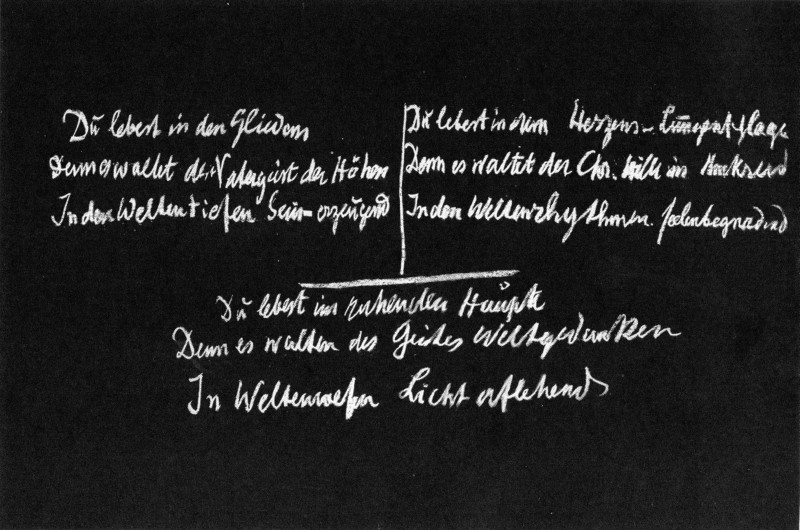 Du lebest in den Gliedern
Denn es waltet der Vatergeist der Höhen
In den Weltentiefen Sein-erzeugend
Du lebest in dem Herzens-Lungenschlage
Denn es waltet der Chr. Wille im Umkreis
In den Weltenrhythmen seelenbegnadend
Du lebest im ruhenden Haupte
Denn es walten des Geistes Weltgedanken
In Weltenwesen Licht erflehend